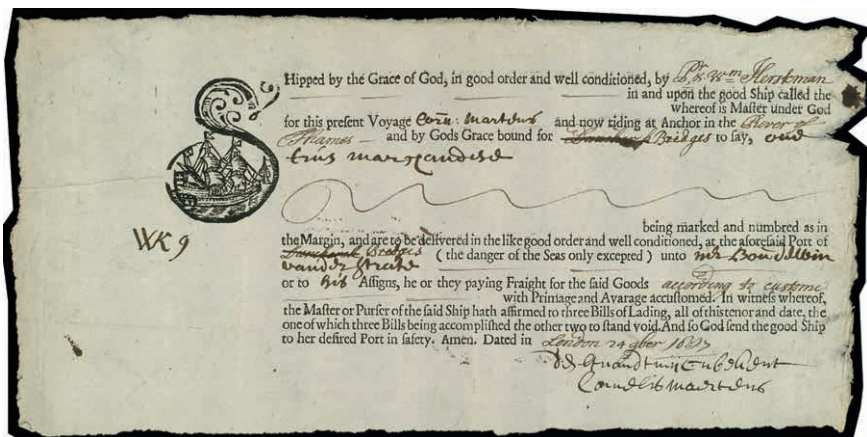 SHipped by the Grace of God, in good order and well conditioned, by Pr. & Wm Herrkman
in and upon the good Ship called the
whereof is Master under God
for this present Voyage Corn: Martens and now riding at Anchor in the River of
Thames and by Gods Grace bound for Bridges to say, one
trus marchandise
being marked and numbred as in
the Margin, and are to be delivered in the like good order and well conditioned, at the aforesaid Port of
Bridges (the danger of the Seas only excepted) unto mr Boudewin
vander
WK 9
or to his Assigns, he or they paying Fraight for the said Goods according to custome
with Primage and Avarage accustomed. In witness whereof,
the Master or Purser of the said Ship hath affirmed to three Bills of Lading, all of this tenor and date, the
one of which three Bills being accomplished the other two to stand void. And so God send the good Ship
to her desired Port in safety. Amen. Dated in London 24 9ber
Cornelis Maertens